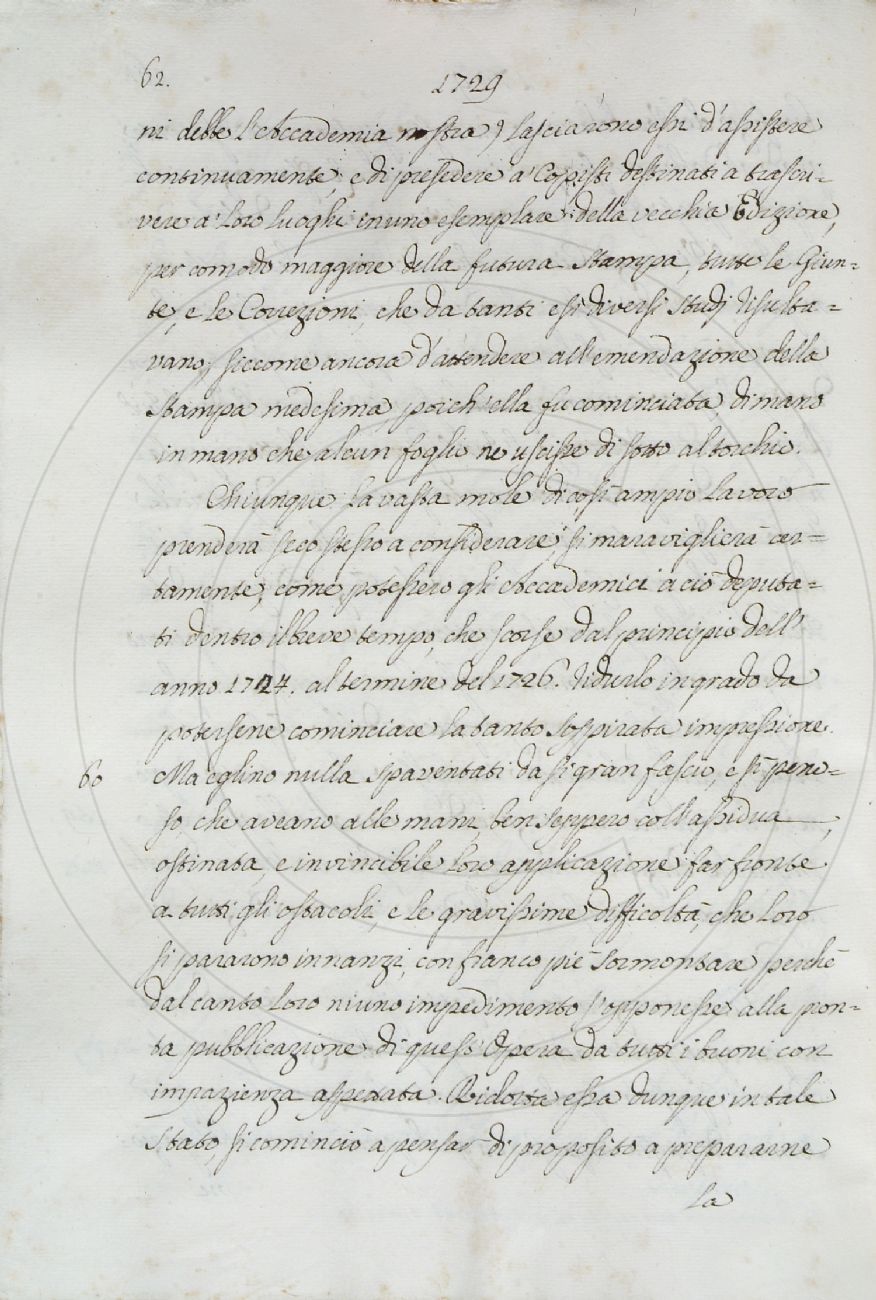 62.
1729
ni debbe l'Accademia nostra) lasciarono essi d'assistere
continuamente, e di presedere a' Copisti destinati a trascri=
vere a' loro luoghi in uno esemplare della vecchia Edizione,
per comodo maggiore della futura stampa, tutte le Giun=
te, e le Correzioni, che da tanti e sì diversi studj risulta=
vano; siccome ancora d'attendere all'emendazione della
stampa medesima, poich'ella fu cominciata, di mano
in mano che alcun foglio ne uscisse di sotto al torchio.
Chiunque la vasta mole di così ampio lavoro
prenderà seco stesso a considerare, si maraviglierà cer=
tamente, come potessero gli Accademici a ciò deputa=
ti dentro il breve tempo, che scorse dal principio dell'
anno 1724. al termine del 1726. ridurlo in grado da
potersene cominciare la tanto sospirata impressione.
60 Ma eglino nulla spaventati da sì gran fascio, e sì peno=
so, che aveano alle mani, ben seppero coll'assidua,
ostinata, e invincibile loro applicazione far fronte
a tutti gli ostacoli, e le gravissime difficoltà, che loro
si pararono innanzi, con franco piè sormontare, perchè
dal canto loro niuno impedimento s'opponesse alla pron=
ta pubblicazione di quest'Opera da tutti i buoni con
impazienza aspettata. Ridotta essa dunque in tale
stato, si cominciò a pensar di proposito a prepararne
la